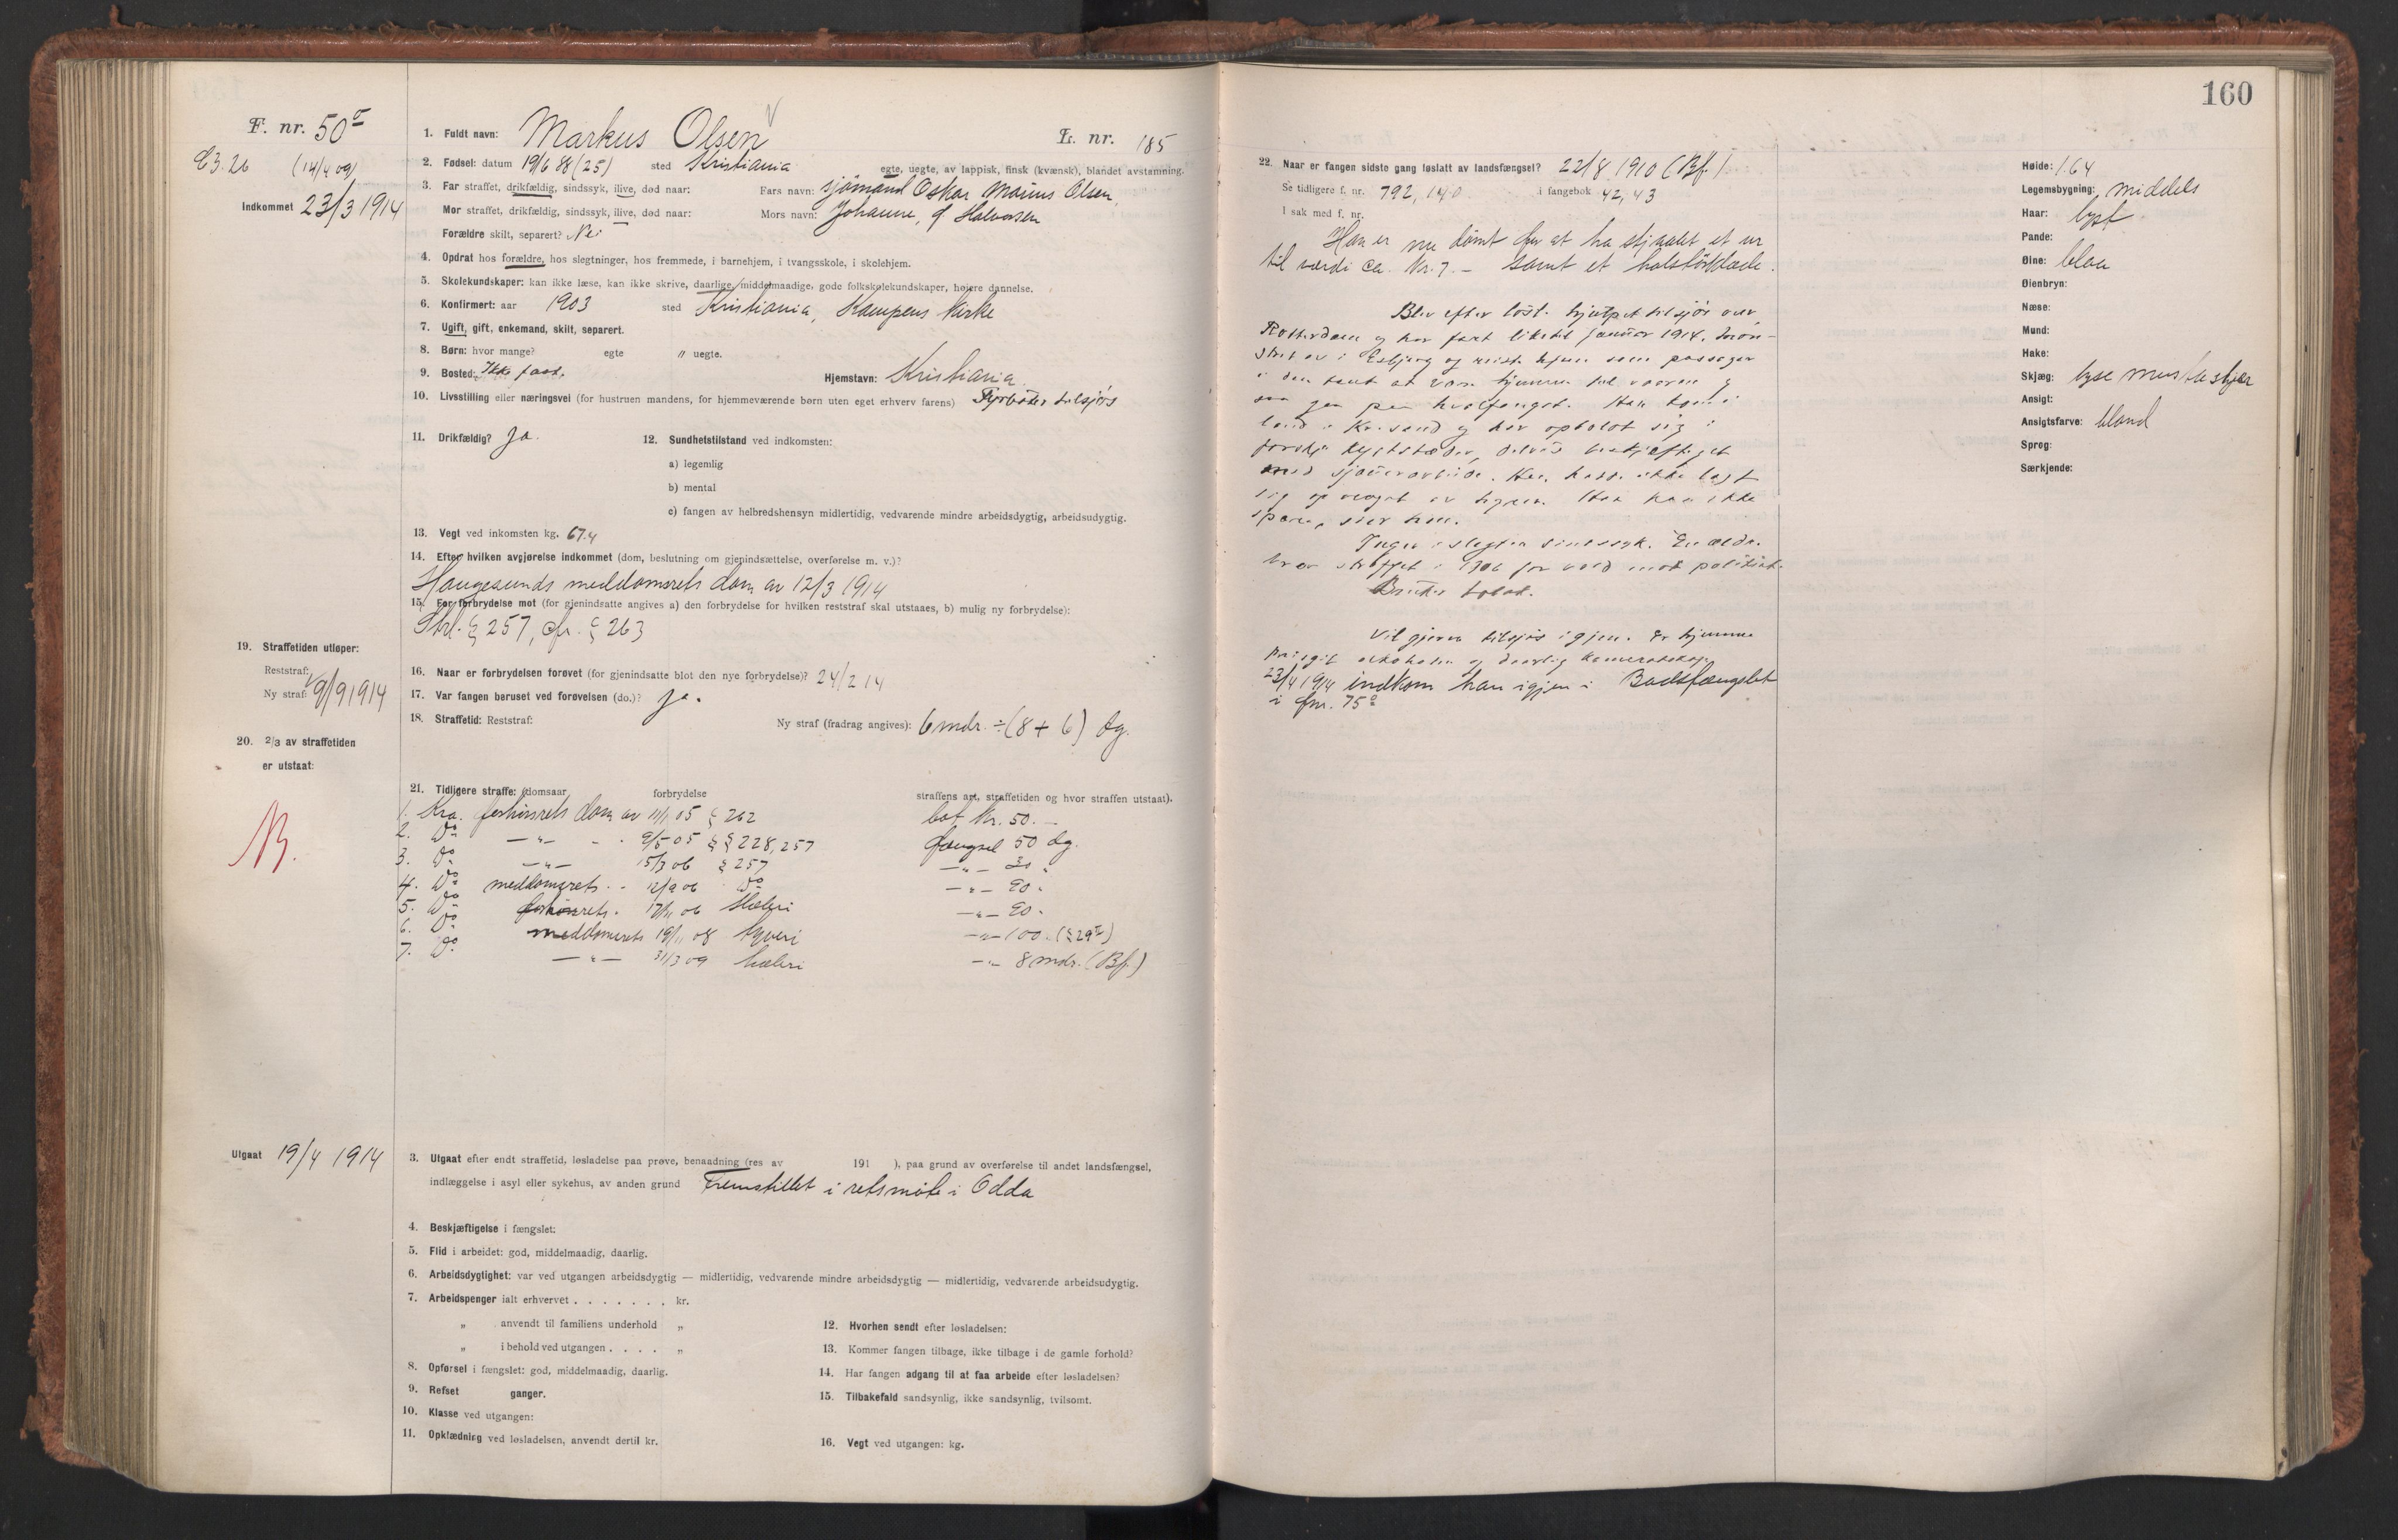 160
F. nr. 50
E3.26 (14/4 09)
Indkommet 23/3 1914
1. Fuldt navn: Markus Olsen
L. nr. 185
2. Fødsel: datum 19/6 88 (25) sted Kristiania egte, uegte, av lappisk, finsk (kvænsk), blandet avstamning.
3. Far straffet, drikfældig, sindssyk, ilive, død naar: Fars navn: sjømand Oskar Marius Olsen,
Mor straffet, drikfældig, sindssyk, ilive, død naar: Mors navn: Johanne, f. Halvorsen
Forældre skilt, separert? Nei
4. Opdrat hos forældre, hos slegtninger, hos fremmede, i barnehjem, i tvangsskole, i skolehjem.
5. Skolekundskaper: kan ikke læse, kan ikke skrive, daarlige, middelmaadige, gode folkskolekundskaper, høiere dannelse.
6. Konfirmert: aar 1903 sted Kristiania, Kampens Kirke
7. Ugift, gift, enkemand, skilt, separert.
8. Børn: hvor mange? egte " uegte.
9. Bosted: Ikke fast. Hjemstavn: Kristiania
10. Livsstilling eller næringsvei (for hustruen mandens, for hjemmeværende børn uten eget erhverv farens) Fyrbøter tilsjøs
11. Drikfældig? Ja. 12. Sundhetstilstand ved indkomsten:
a) legemlig
b) mental
c) fangen av helbredshensyn midlertidig, vedvarende mindre arbeidsdygtig, arbeidsudygtig.
13. Vegt ved inkomsten kg. 67.4
14. Efter hvilken avgjørelse indkommet (dom, beslutning om gjenindsættelse, overførelse m. v.)?
Haugesunds meddomsrets dom av 12/3 1914
15. For forbrydelse mot (for gjenindsatte angives a) den forbrydelse for hvilken reststraf skal utstaaes, b) mulig ny forbrydelse):
Strl. § 257, cfr. § 263
19. Straffetiden utløper:
Reststraf:
Ny straf: 9/9 1914
16. Naar er forbrydelsen forøvet (for gjenindsatte blot den nye forbrydelse)? 24/2 14
17. Var fangen beruset ved forøvelsen (do.)? Ja.
18. Straffetid: Reststraf: Ny straf (fradrag angives): 6 mdr. ÷ (8 + 6) dg.
20. 2/3 av straffetiden
er utstaat:
21. Tidligere straffe: (domsaar forbrydelse straffens art, straffetiden og hvor straffen utstaat).
1. Kra. forhørsrets dom av 11/1 05 § 262 bot Kr. 50.-
2. Do —"— 9/5 05 §§ 228, 257 fængsel 50 dg.
3. Do —"— 15/3 06 § 257 —"— 30 "
4. Do meddomsrets 12/9 06 Do —"— 90 "
5. Do forhørsrets 17/11 06 Hæleri —"— 90 "
6. Do meddomsrets 19/11 08 tyveri —"— 100 "
7. Do —"— 31/3 09 hæleri —"— 8 mdr. (Bf.)
Utgaat 19/4 1914
3. Utgaat efter endt straffetid, løsladelse paa prøve, benaadning (res av 191 ), paa grund av overførelse til andet landsfængsel,
indlæggelse i asyl eller sykehus, av anden grund Fremstillet i retsmøte i Odda
4. Beskjæftigelse i fængslet:
5. Flid i arbeidet: god, middelmaadig, daarlig.
6. Arbeidsdygtighet: var ved utgangen arbeidsdygtig — midlertidig, vedvarende mindre arbeidsdygtig — midlertidig, vedvarende arbeidsudygtig.
7. Arbeidspenger ialt erhvervet . . . . . . . kr.
„ anvendt til familiens underhold „
„ i behold ved utgangen . . . . „
8. Opførsel i fængslet: god, middelmaadig, daarlig.
9. Refset ganger.
10. Klasse ved utgangen:
11. Opklædning ved løsladelsen, anvendt dertil kr.
12. Hvorhen sendt efter løsladelsen:
13. Kommer fangen tilbage, ikke tilbage i de gamle forhold?
14. Har fangen adgang til at faa arbeide efter løsladelsen?
15. Tilbakefald sandsynlig, ikke sandsynlig, tvilsomt.
16. Vegt ved utgangen: kg.
22. Naar er fangen sidste gang løslatt av landsfængsel? 22/8 1910 (Bf.)
Se tidligere f. nr. 792, 140 i fangebok 42, 43
I sak med f. nr.
Han er nu dømt for at ha stjaalet et ur
til værdi ca. Kr. 7.- samt et halstørklæde.
Blev efter løsl. hjulpet tilsjøs over
Rotterdam og har fart liketil januar 1914. Møn-
stret av i Esbjerg og reiste hjem som passager
i den tanke at være hjemme til vaaren og
saa gaa paa hvalfangst. Han kom i
land i Kr.sand og har opholdt sig i
forskj. kystbyer, delvis beskjæftiget
med sjauerarbeide. Han hadde ikke lagt
sig op noget av hyren. Han kan ikke
spare, sier han.
Ingen i slegten sindssyk. En ældre
bror straffet i 1906 for vold mot politiet.
Bruker tobak.
Vil gjerne tilsjøs igjen. Er hjemme
prisgit alkoholen og daarlig kameratskap.
23/4 1914 indkom han igjen i Bodsfængslet
i fnr. 75
Høide: 1.64
Legemsbygning: middels
Haar: lyst
Pande:
Øine: blaa
Øienbryn:
Næse:
Mund:
Hake:
Skjæg: lyse mustascher
Ansigt:
Ansigtsfarve: blond
Sprog:
Særkjende: